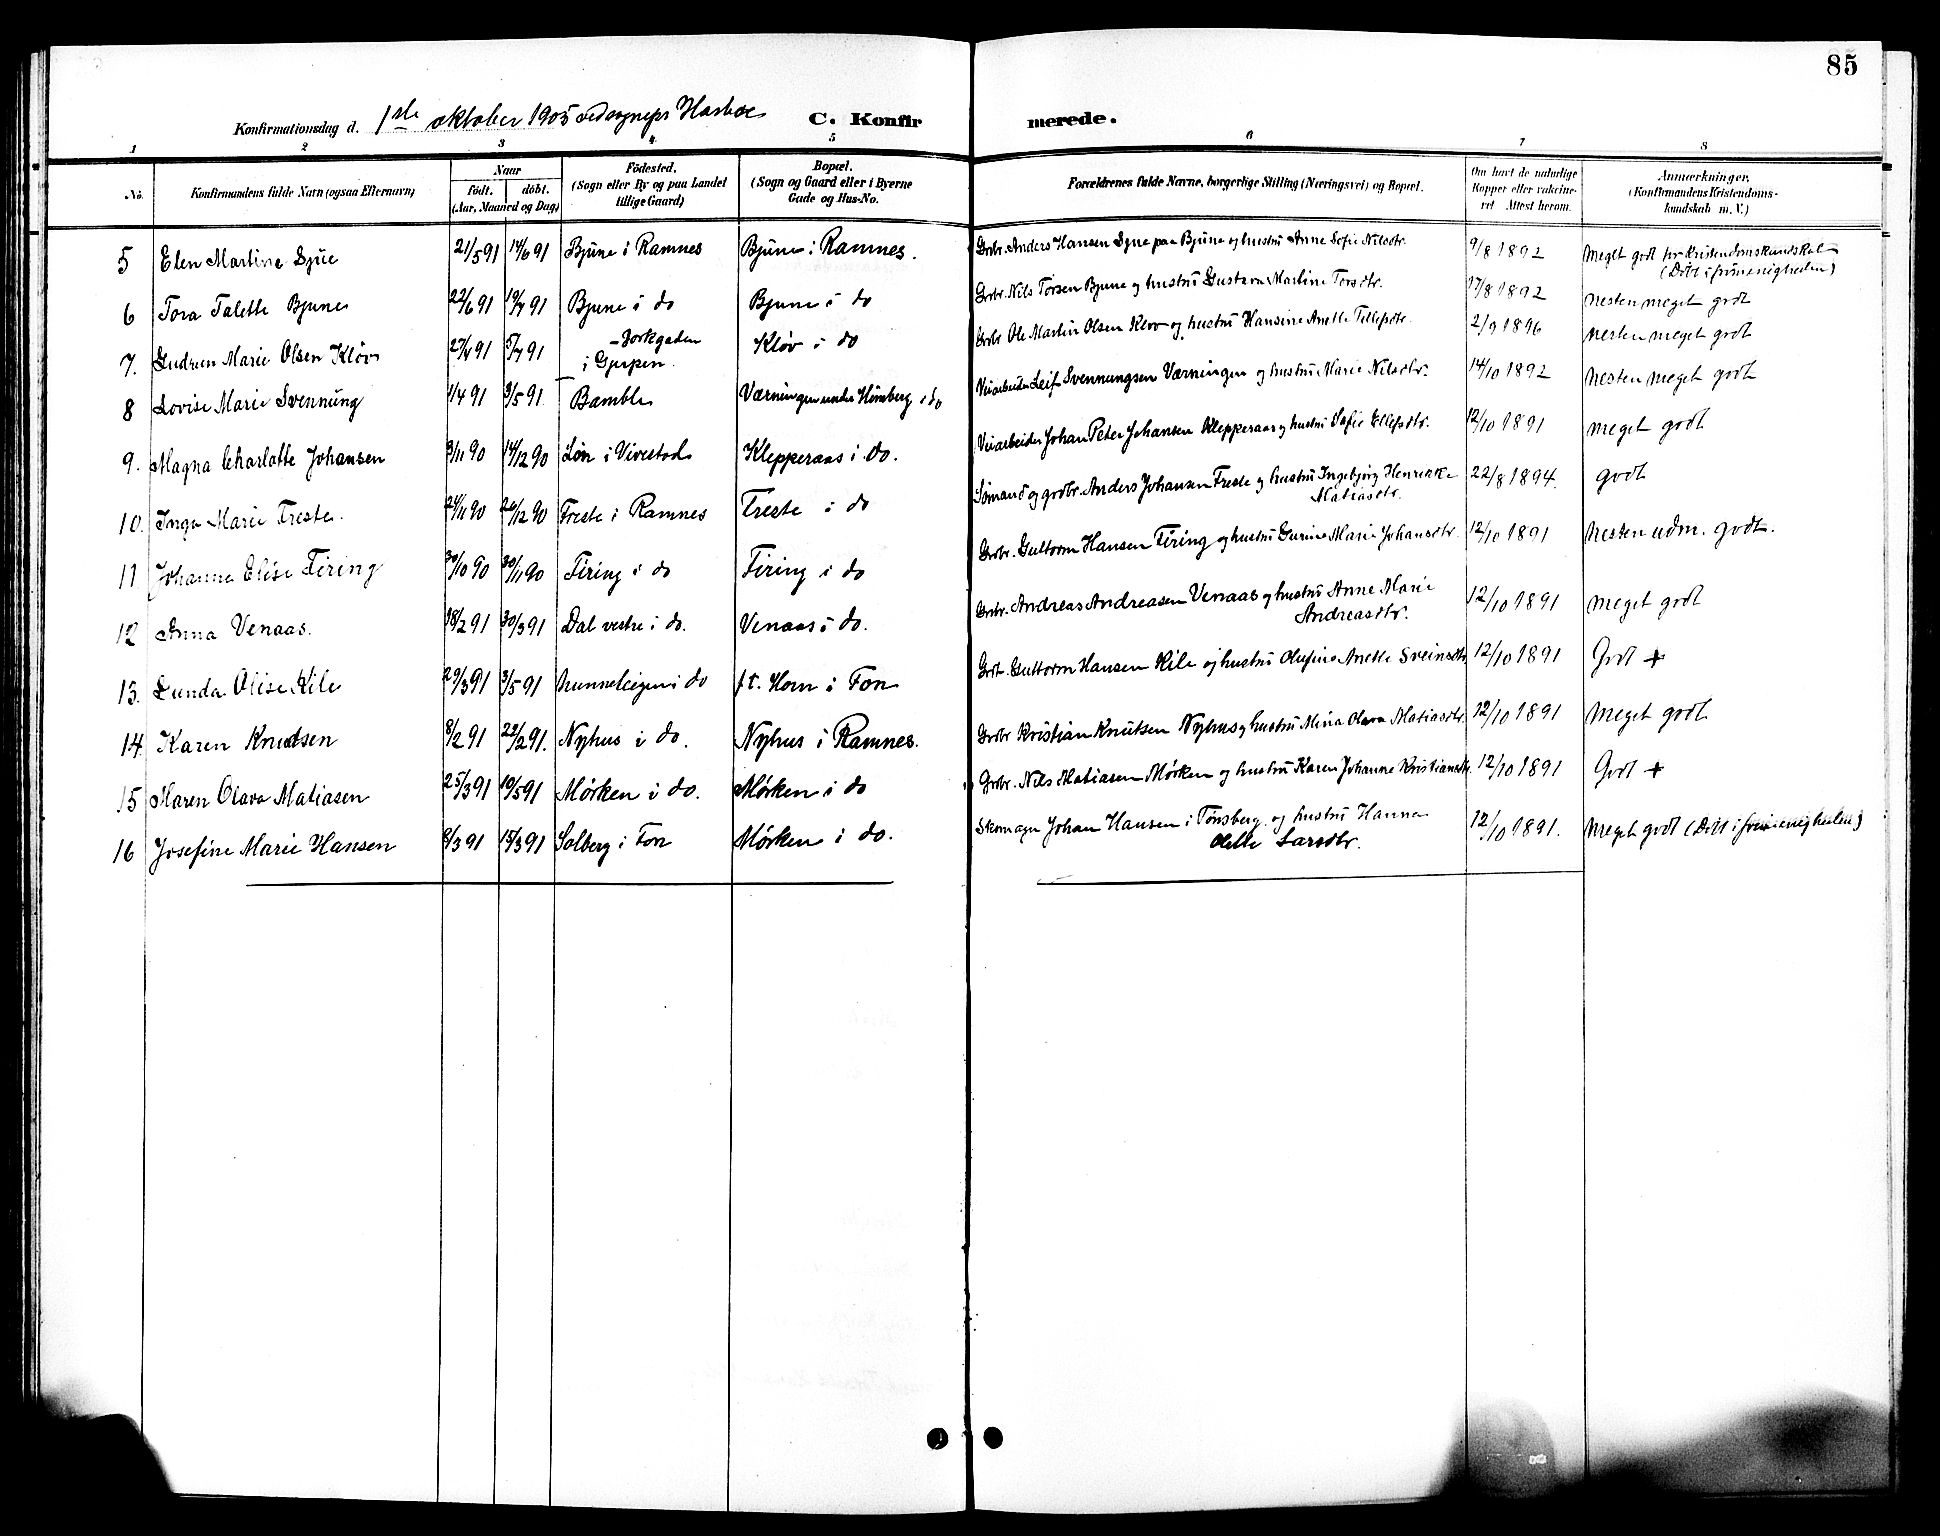 85
Konfirmationsdag d. 1ste oktober 1905 ved sogneprs Harboe C. Konfirmerede.
1 2 3 4 5 6 7 8
No. Konfirmandens fulde Navn (ogsaa Efternavn) Naar født. døbt. (Aar, Maaned og Dag) Fødested. (Sogn eller By og paa Landet tillige Gaard) Bopæl. (Sogn og Gaard eller i Byerne Gade og Hus-No. Forældrenes fulde Navne, borgerlige Stilling (Næringsvei) og Bopæl. Om havt de naturlige Kopper eller vakcineret. Attest herom. Anmærkninger. (Konfirmandens Kristendomskundskab m. V.)
5 Elen Martine Sjue 21/5 91 14/6 91 Bjune i Ramnes Bjune i Ramnes. Grbr. Anders Hansen Sjue paa Bjune og hustru Anne Sofie Nilsdtr. 9/8 1892 Meget godt for Kristendomskundskab
(Døbt i frimenigheden)
6 Tora Talette Bjune 22/6 91 19/7 91 Bjune i do Bjune i do Grbr. Nils Torsen Bjune og hustru Gustava Martine Torsdtr. 17/8 1892 nesten meget godt
7. Gudrun Marie Olsen Kløv 27/4 91 5/7 91 Jorkgaden
i Gjerpen. Kløv i do Grbr Ole Martin Olsen Kløv og hustru Hansine Anette Tellefsdtr. 2/9 1896 nesten meget godt
8 Lovise Marie Svennung 1/4 91 3/5 91 Bamble Værningen under Himberg i do Veiarbeider Leif Svennungsen Værningen og hustru Marie Nilsdtr. 14/10 1892 nesten meget godt
9. Magna Charlotte Johansen 3/11 90 14/12 90 Løn i Vivestad Klepperaas i do. Veiarbeider Johan Peter Johansen Klepperaas og hustru Sofie Ellefsdtr. 12/10 1891 meget godt
10. Inga Marie Freste. 24/11 90 26/12 90 Freste i Ramnes Freste i do Sømand og grdbr. Anders Johansen Freste og hustru Ingebjørg Henrikke
Matiasdtr. 22/8 1894. godt
11 Johanne Elise Firing 30/10 90 30/11 90 Firing i do Firing i do Grbr. Guttorm Hansen Firing og hustru Gurine Marie Johansdtr. 12/10 1891 nesten udm. godt.
12 Anna Venaas. 18/2 91 30/3 91 Dal vestre i do. Venaas i do. Grbr. Andreas Andreasen Venaas og hustru Anne Marie
Andreasdtr. 12/10 1891 meget godt
13. Gunda Olise Kile 29/3 91 3/5 91 i do f.t. Horn i Fon Grbr. Guttorm Hansen Kile og hustru Olufine Anette Sveinsdtr. 12/10 1891 Godt +
14. Karen Knudsen 8/2 91 22/2 91. Nyhus i do. Nyhus i Ramnes. Grbr Kristian Knutsen Nyhus og hustru Mina Olava Matiasdtr. 12/10 1891 Meget godt
15 Maren Olava Matiasen 25/3 91 10/5 91 Mørken i do. Mørken i do Grbr. Nils Matiasen Mørken og hustru Karen Johanne Kristiansdtr. 12/10 1891 Godt +
16 Josefine Marie Hansen 8/3 91 15/3 91 Solberg i Fon Mørken i do. Skomager Johan Hansen i Tønsberg og hustru Hanna
Olette Larsdtr. 12/10 1891. Meget godt (Døbt i frimenigheden)